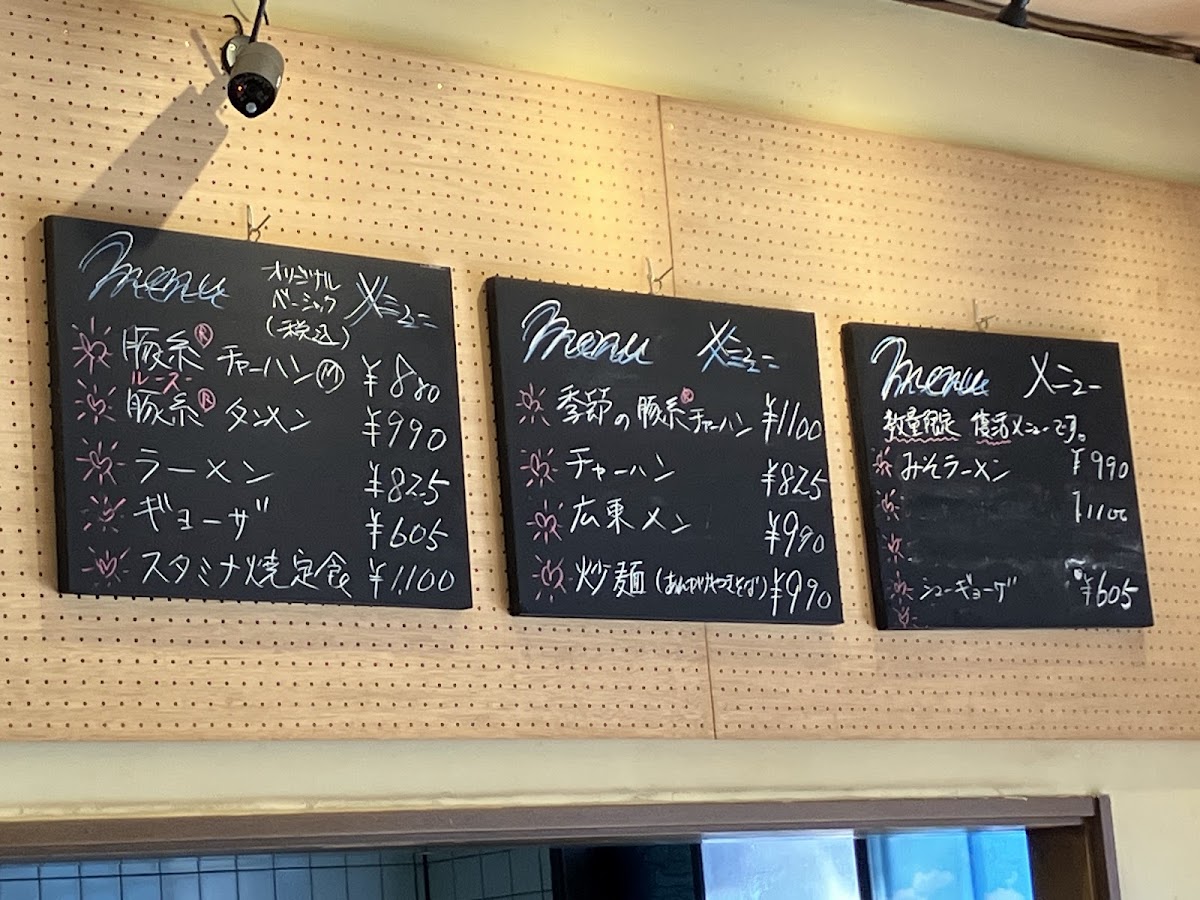 menu オリジナル ベーシック (税込) メニュー
豚糸® チャーハン Ⓜ ¥880
ルースー
豚糸® タンメン ¥990
ラーメン ¥825
ギョーザ ¥605
スタミナ焼定食 ¥1,100
menu メニュー
季節の豚糸®チャーハン ¥1100
チャーハン ¥825
広東メン ¥990
炒麺(あんかけやきそば) ¥990
menu メニュー
数量限定 復活メニューです。
みそラーメン ¥990
¥1100
シューギョーザ ¥605